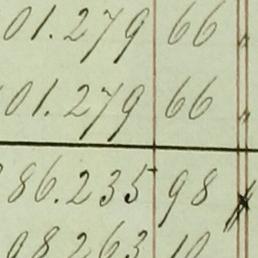 01.279 66 "
01.279 66 "
86.235 98
98263 10